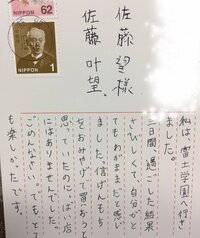 62
NIPPON
1
NIPPON
佐藤 望様
佐藤 叶望、
私は、富士学園へ行き
ました。
三日間、過ごした結果
さびしくて、自分がと
てもわがままだと感じ
ました。信げんもち
をおみやげに買おうと
思っていたのに、ばい店
にはありませんでした。
ごめんなさい。でもとて
も楽しかったです。